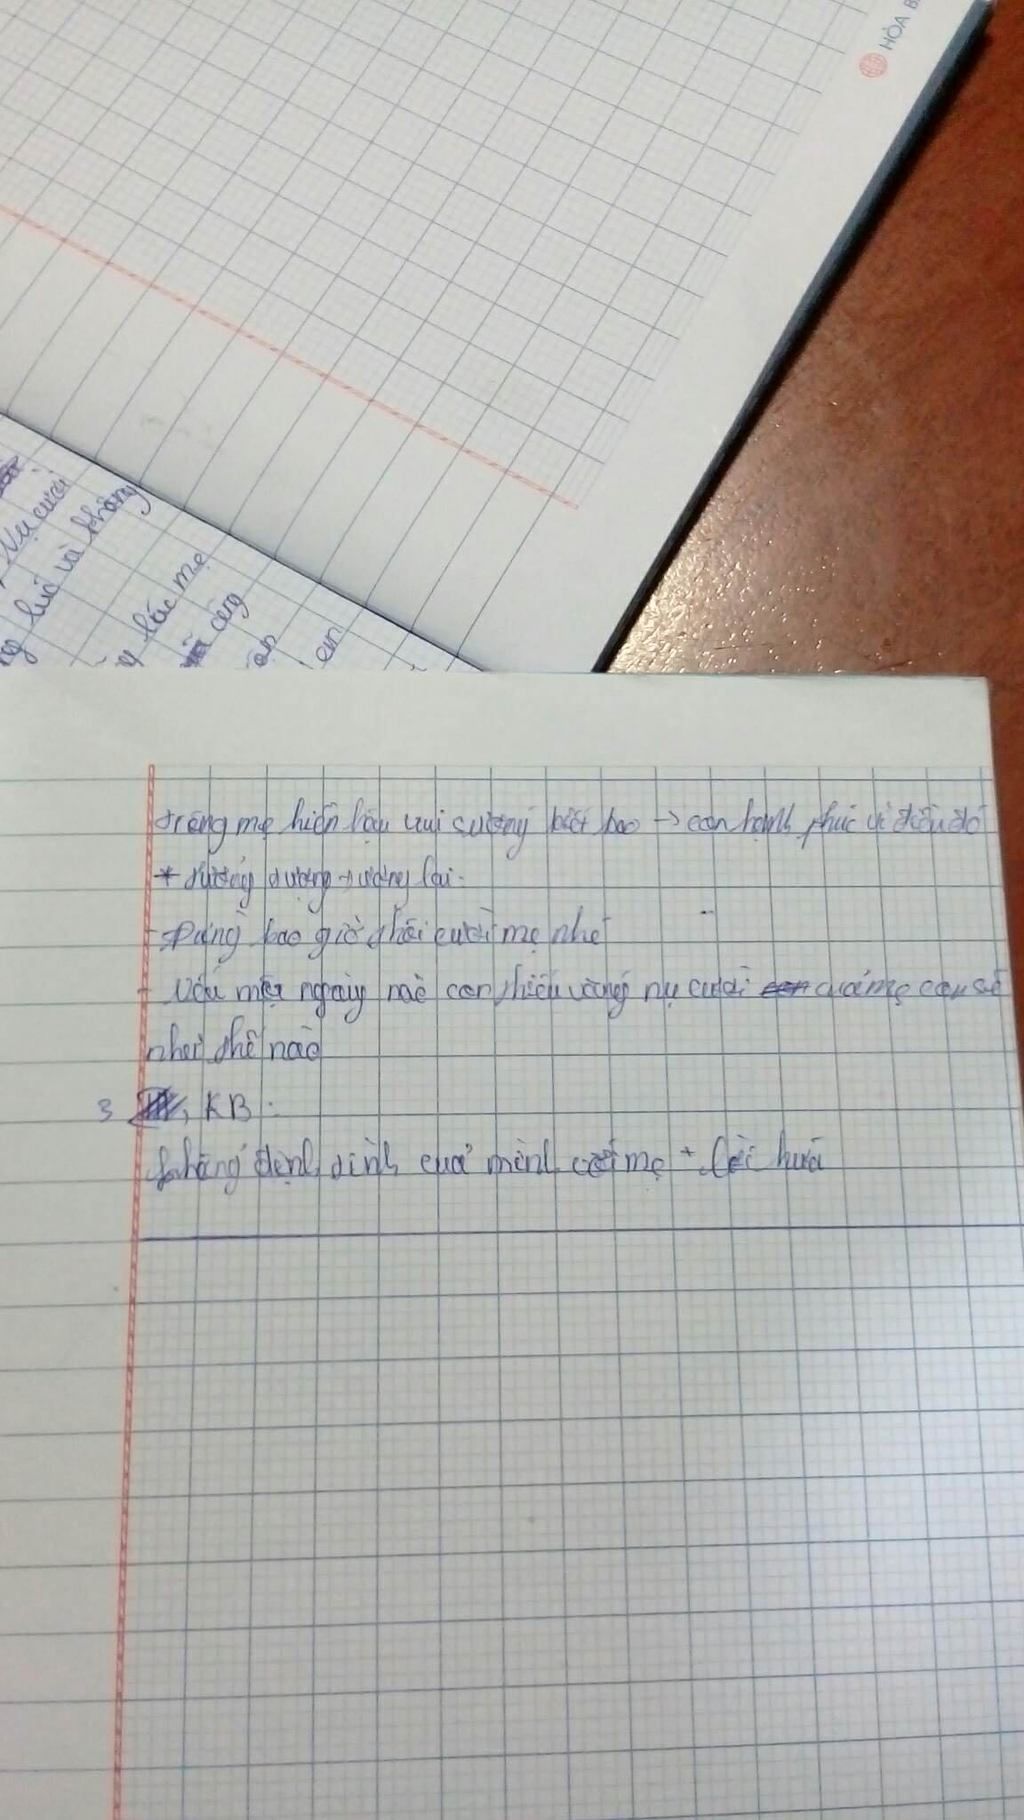 HÒA B
Nụ cười
lúc mẹ
trông mẹ hiền hậu vui sướng biết bao → con hạnh phúc vì điều đó
* tưởng tượng tương lai.
- Đừng bao giờ thôi cười mẹ nhé
- Nếu một ngày nào con thiếu vắng nụ cười của mẹ con sẽ
như thế nào
3, KB:
khẳng định tình cuả mình với mẹ + lời hứa